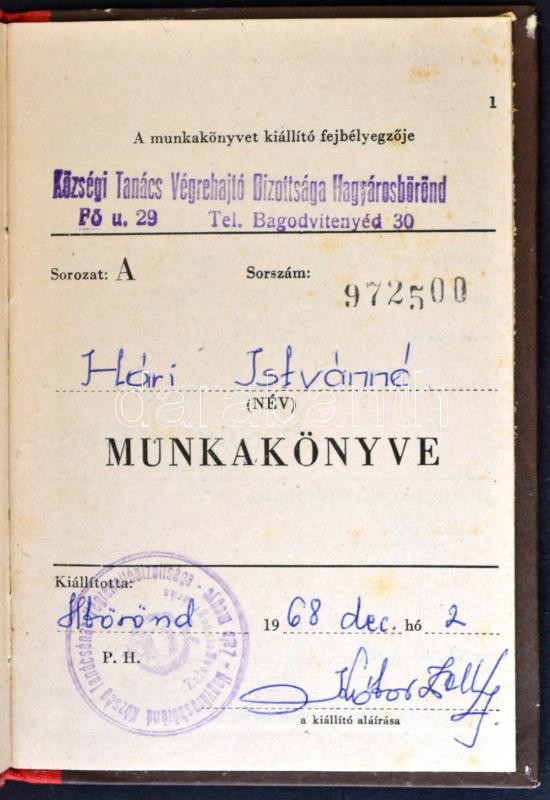 1
A munkakönyvet kiállító fejbélyegzője
Községi Tanács Végrehajtó Bizottsága Hagyárosbörönd
Fő u. 29 Tel. Bagodvitenyéd 30
Sorozat: A Sorszám: 972500
Hári Istvánné
(NÉV)
darabanth
MUNKAKÖNYVE
Kiállította:
Hbörönd 1968 dec. hó 2
P. H.
a kiállító aláírása